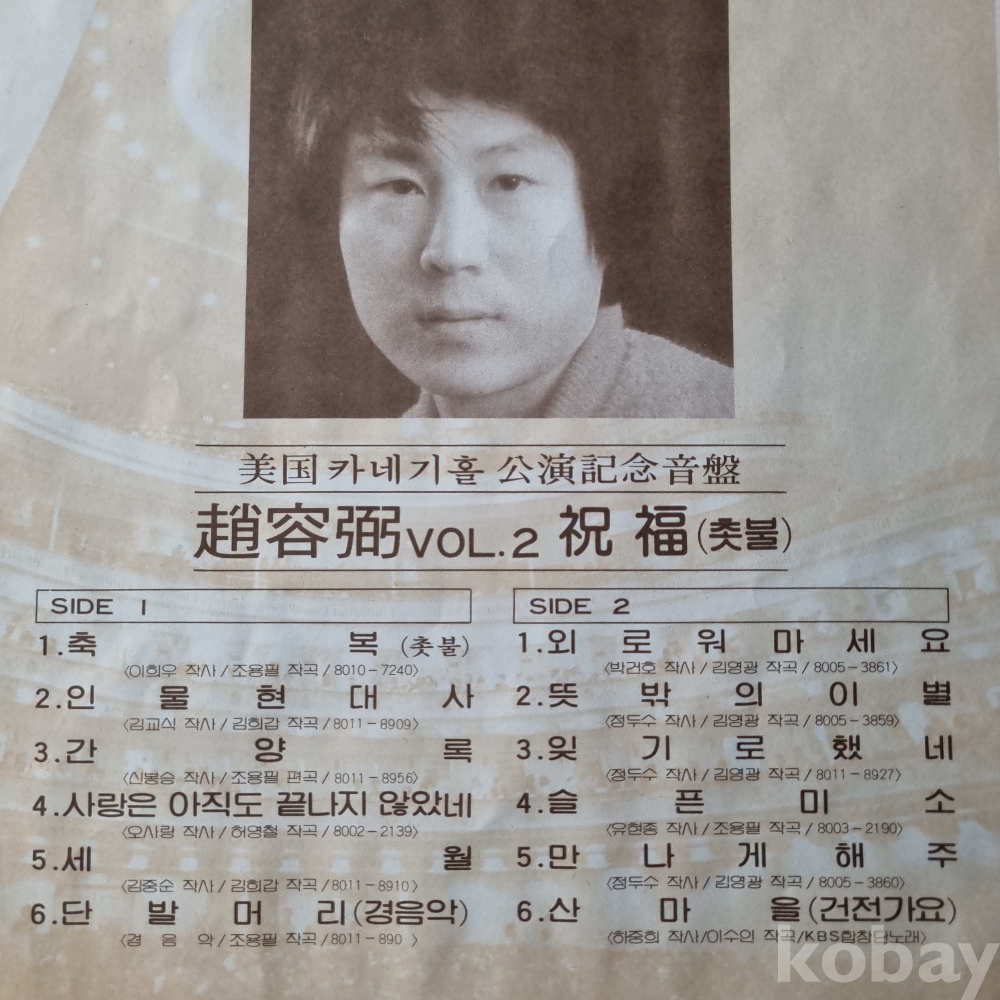 美国 카네기홀 公演記念音盤
趙容弼 VOL.2 祝福(촛불)
SIDE 1
1.축복(촛불)
〈이희우 작사/조용필 작곡/8010-7240〉
2.인물현대사
〈김교식 작사/김희갑 작곡/8011-8909〉
3.간양록
〈신봉승 작사/조용필 편곡/8011-8956〉
4.사랑은 아직도 끝나지 않았네
〈오사랑 작사/허영철 작곡/8002-2139〉
5.세월
〈김중순 작사/김희갑 작곡/8011-8910〉
6.단발머리(경음악)
〈경음악/조용필 작곡/8011-890 〉
SIDE 2
1.외로워마세요
〈박건호 작사/김영광 작곡/8005-3861〉
2.뜻밖의이별
〈정두수 작사/김영광 작곡/8005-3859〉
3.잊기로했네
〈정두수 작사/김영광 작곡/8011-8927〉
4.슬픈미소
〈유현종 작사/조용필 작곡/8003-2190〉
5.만나게해주
〈정두수 작사/김영광 작곡/8005-3860〉
6.산마을(건전가요)
〈하중희 작사/이수인 작곡/KBS합창단노래〉
kobay